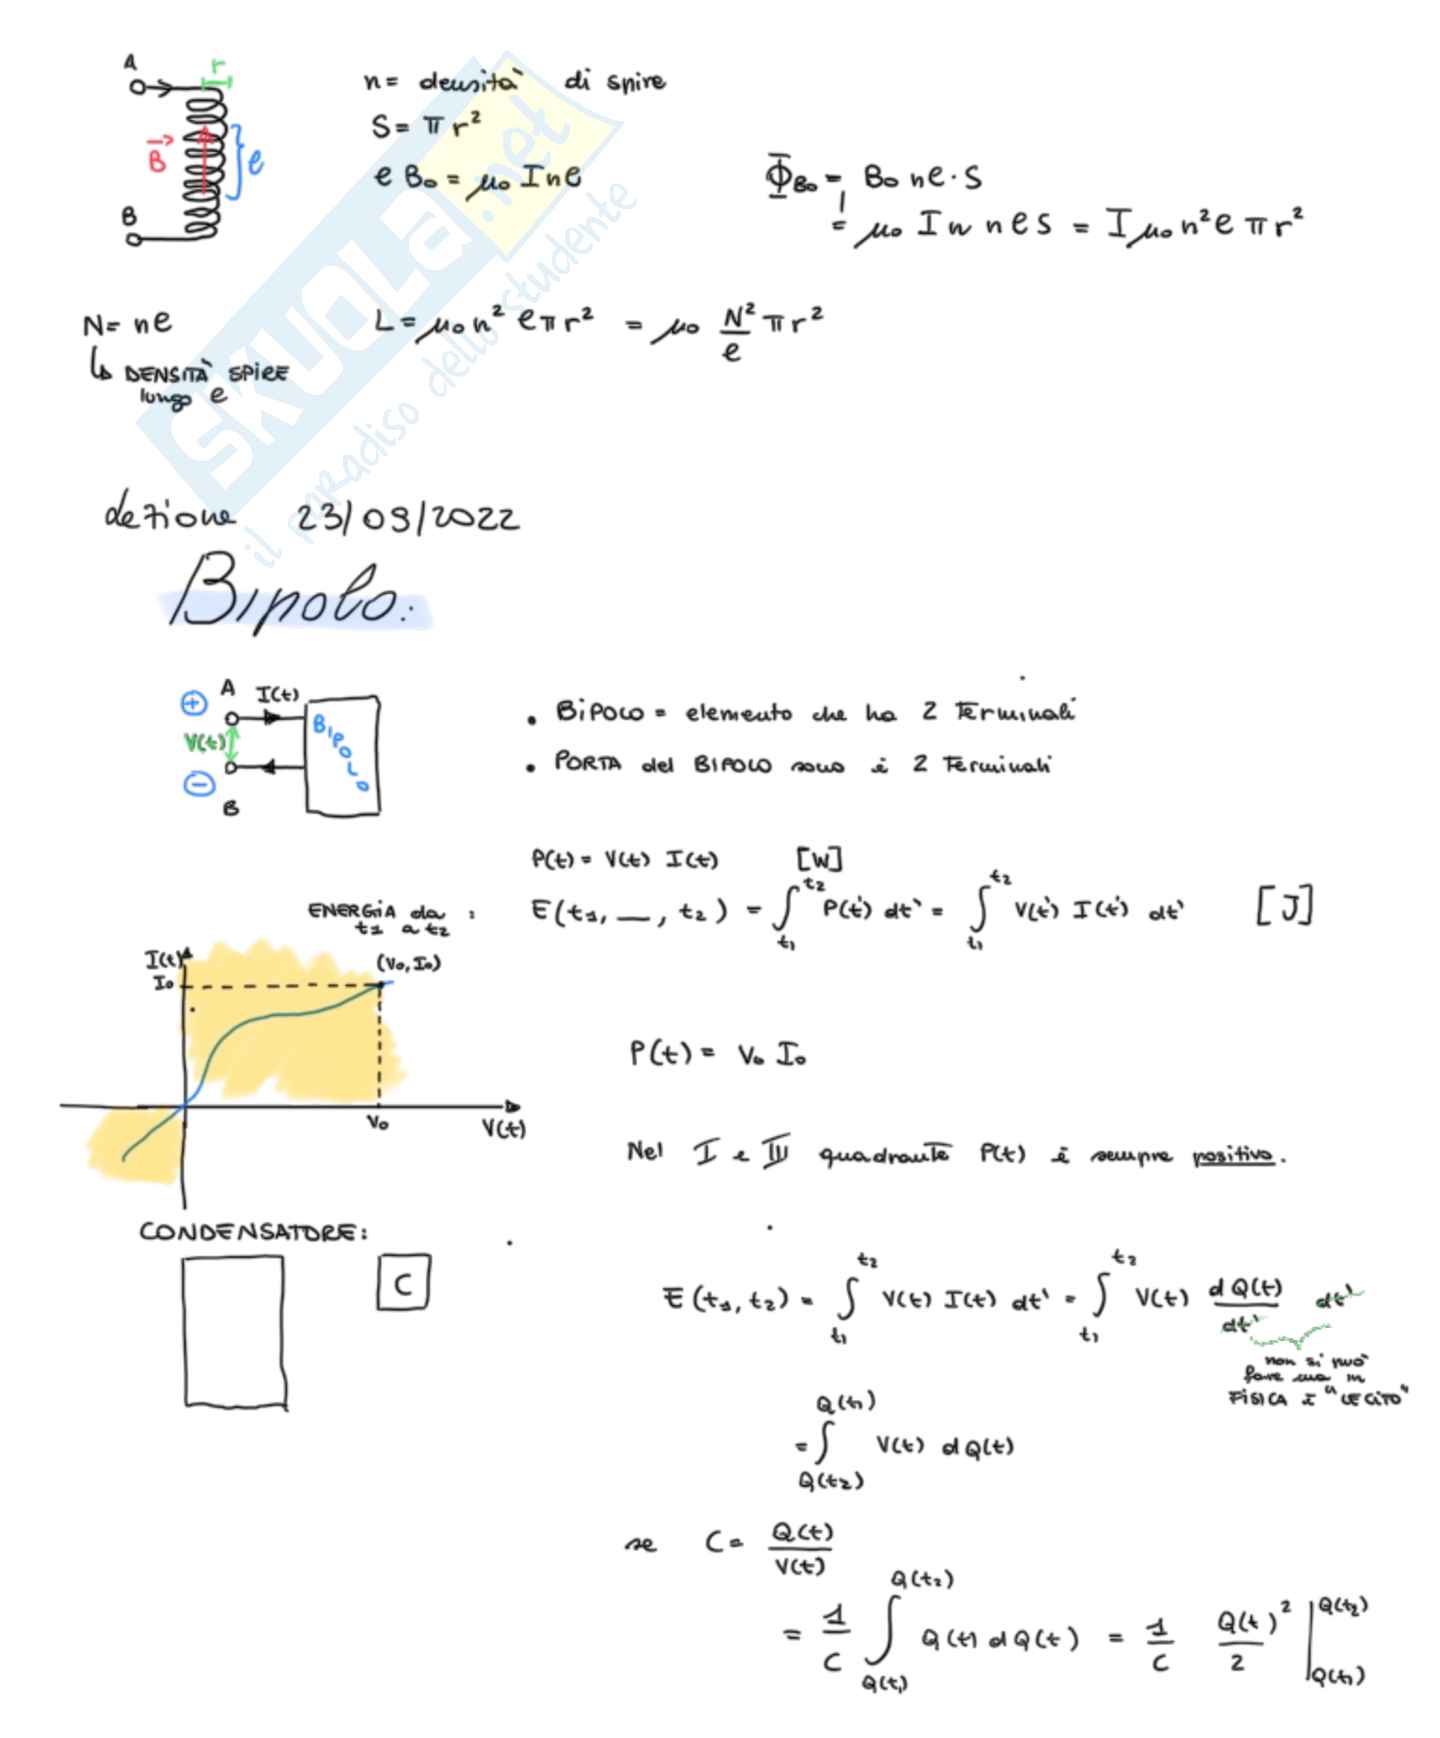 A
r
n = densità di spire
S = π r²
B⃗
ℓ
ℓ B₀ = μ₀ I n ℓ
Φ_B₀ = B₀ n ℓ · S
B
= μ₀ I n n ℓ S = I μ₀ n² ℓ π r²
N = n ℓ
L = μ₀ n² ℓ π r² = μ₀ N²/ℓ π r²
↳ DENSITÀ SPIRE
lungo ℓ
SKUOLA.net
il paradiso dello studente
Lezione 23/09/2022
Bipolo:
+ A I(t)
V(t) BIPOLO
− B
• BIPOLO = elemento che ha 2 Terminali
• PORTA del BIPOLO sono i 2 Terminali
P(t) = V(t) I(t) [W]
ENERGIA da t₁ a t₂ : E(t₁, __, t₂) = ∫_t₁^t₂ P(t') dt' = ∫_t₁^t₂ V(t') I(t') dt' [J]
I(t)
(V₀, I₀)
I₀
P(t) = V₀ I₀
V₀
V(t)
Nel I e III quadrante P(t) è sempre positivo.
CONDENSATORE:
C
E(t₁, t₂) = ∫_t₁^t₂ V(t) I(t) dt' = ∫_t₁^t₂ V(t) dQ(t)/dt' dt'
non si può
fare ma in
FISICA È "LECITO"
= ∫_Q(t₂)^Q(t₁) V(t) dQ(t)
se C = Q(t)/V(t)
= 1/C ∫_Q(t₁)^Q(t₂) Q(t) dQ(t) = 1/C Q(t)²/2 |_Q(t₁)^Q(t₂)